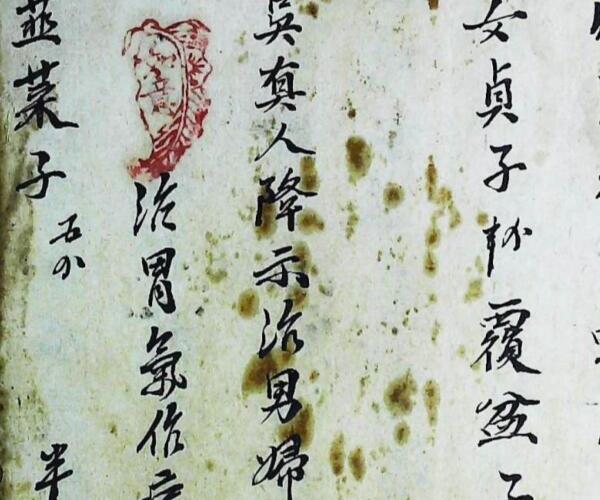 女貞子 覆盆子
吳真人降示治男婦
治胃氣作
韮菜子 五分 半